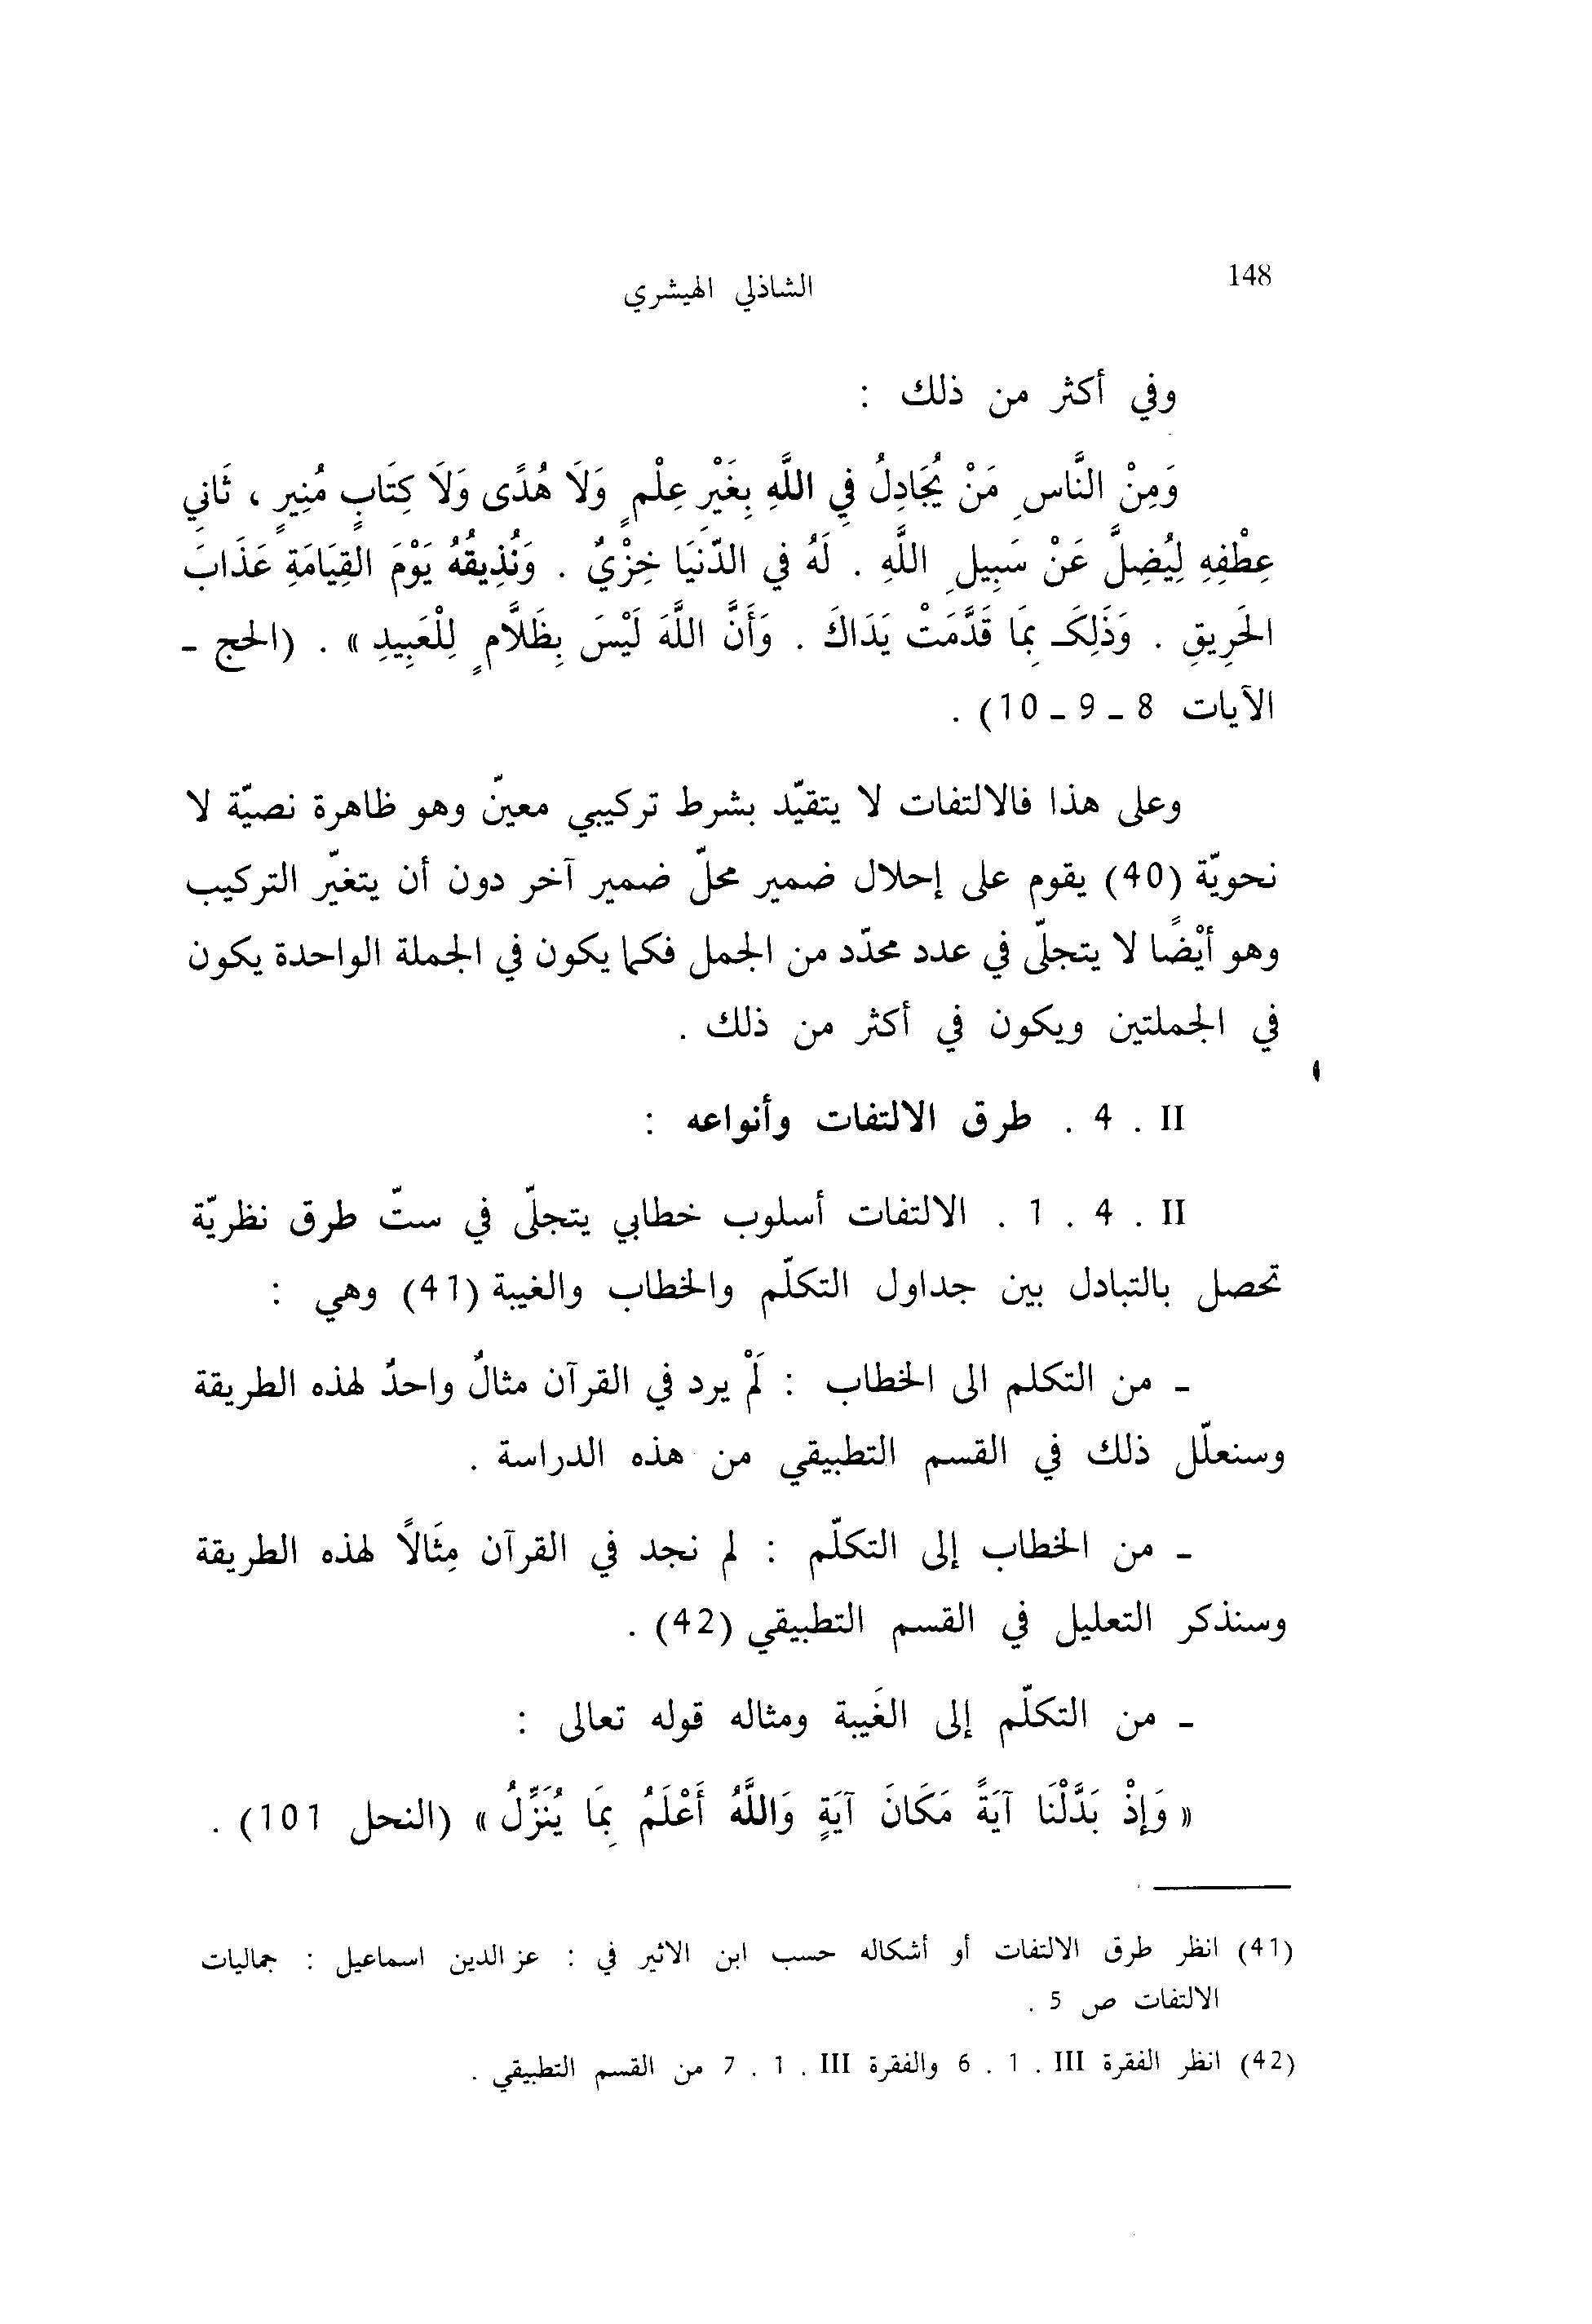 148
الشاذلي الهيشري
وفي أكثر من ذلك :
وَمِنْ النَّاسِ مَنْ يُجَادِلُ فِي اللَّهِ بِغَيْرِ عِلْمٍ وَلَا هُدًى وَلَا كِتَابٍ مُنِيرٍ ، ثَانِيَ
عِطْفِهِ لِيُضِلَّ عَنْ سَبِيلِ اللَّهِ . لَهُ في الدّنْيَا خِزْيٌ . وَنُذِيقُهُ يَوْمَ القِيَامَةِ عَذَابَ
الحَرِيقِ . وَذَلِكَ بِمَا قَدَّمَتْ يَدَاكَ . وَأَنَّ اللَّهَ لَيْسَ بِظَلَّامٍ لِلْعَبِيدِ » . (الحج ـ
الآيات 8 ـ 9 ـ 10) .
وعلى هذا فالالتفات لا يتقيّد بشرط تركيبي معيّن وهو ظاهرة نصيّة لا
نحويّة (40) يقوم على إحلال ضمير محلّ ضمير آخر دون أن يتغيّر التركيب
وهو أيْضًا لا يتجلّى في عدد محدّد من الجمل فكما يكون في الجملة الواحدة يكون
في الجملتين ويكون في أكثر من ذلك .
II . 4 . طرق الالتفات وأنواعه :
II . 4 . 1 . الالتفات أسلوب خطابي يتجلّى في ستّ طرق نظريّة
تحصل بالتبادل بين جداول التكلّم والخطاب والغيبة (41) وهي :
ـ من التكلم الى الخطاب : لَمْ يرد في القرآن مثالٌ واحدٌ لهذه الطريقة
وسنعلّل ذلك في القسم التطبيقي من هذه الدراسة .
ـ من الخطاب إلى التكلّم : لم نجد في القرآن مِثَالًا لهذه الطريقة
وسنذكر التعليل في القسم التطبيقي (42) .
ـ من التكلّم إلى الغَيبة ومثاله قوله تعالى :
« وَإِذْ بَدَّلْنَا آيَةً مَكَانَ آيَةٍ وَاللَّهُ أَعْلَمُ بِمَا يُنَزِّلُ » (النحل 101) .
(41) انظر طرق الالتفات أو أشكاله حسب ابن الاثير في : عز الدين اسماعيل : جماليات
الالتفات ص 5 .
(42) انظر الفقرة III . 1 . 6 والفقرة III . 1 . 7 من القسم التطبيقي .